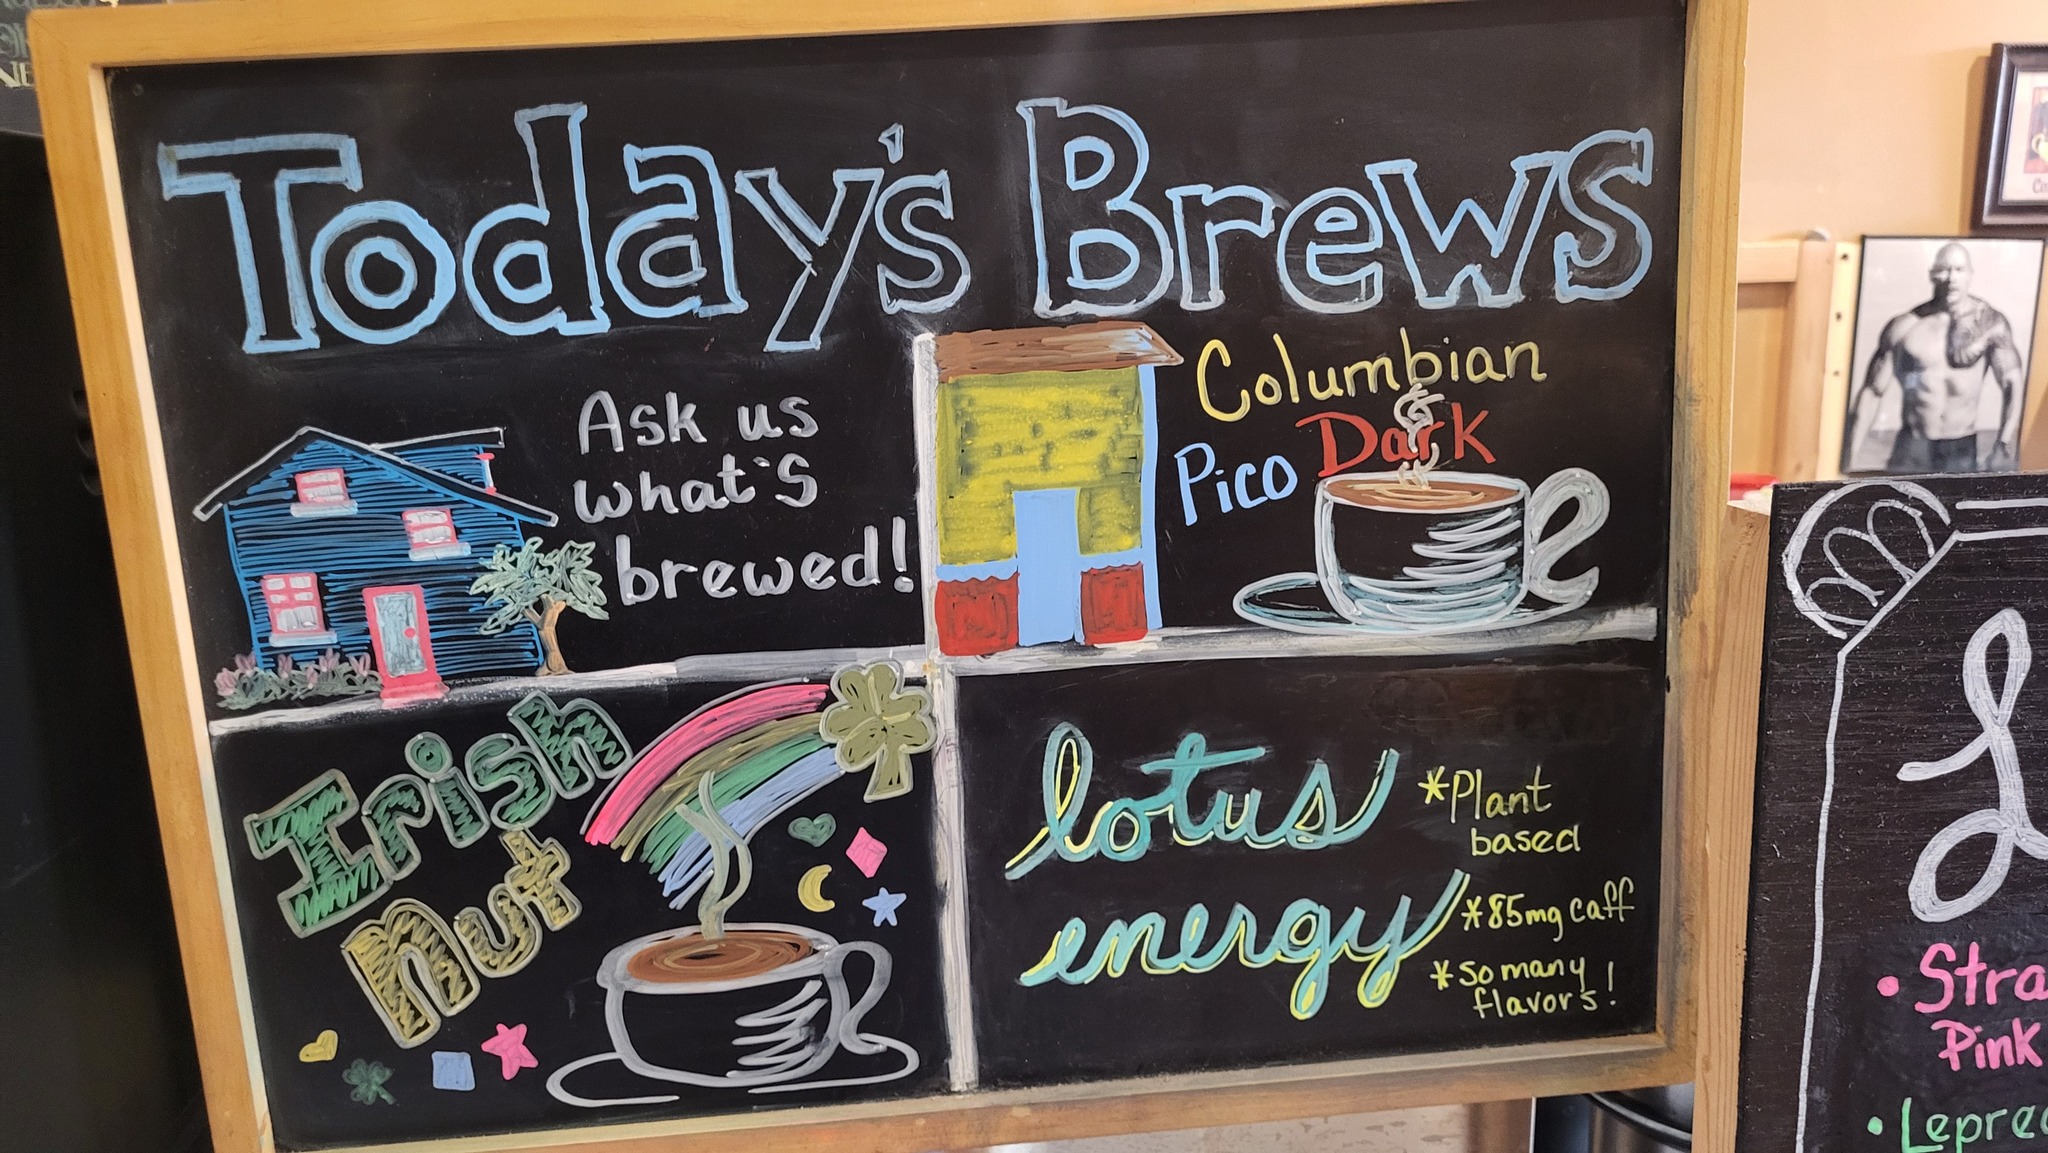 Today's Brews
Ask us
what's
brewed!
Columbian
&
Pico Dark
Irish
Nut
lotus
energy
*Plant
based
*85mg caff
*So many
flavors!
• Stra
Pink
• Leprec